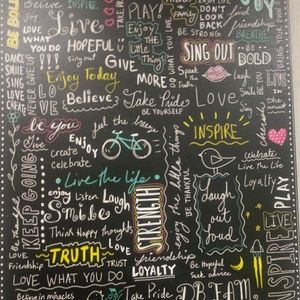 BE BOLD
Believe
INSPIRE
Joy
PLAY
Enjoy
the
little
Things
DON'T
LOOK
BACK
BE STRONG
friendships
BREATHE
Live
LOVE
WHAT
YOU DO
HOPEFUL
SING OUT
BE
BOLD
DANCE
SMILE
SING
LIVE
LOVE
Sing out
GIVE
MORE
Enjoy Today
NEVER GIVE UP
Laugh
Smile
Believe
Take Pride
BE YOURSELF
LOVE
be you
feel the breeze
Live
ENJOY
create
Celebrate
INSPIRE
PLAY
KEEP GOING
Live the life
enjoy the little things
BE THANKFUL
celebrate
Live the life
Loyalty
enjoy
Listen
Laugh
Smile
STRENGTH
laugh
out
loud
Think Happy thoughts
TRUTH
LOVE
TRUST
Love
Friendship
friendship
LOYALTY
Be Hopeful
Seek advice
INSPIRE
LOVE WHAT YOU DO
Believe in miracles
Take Pride
DREAM